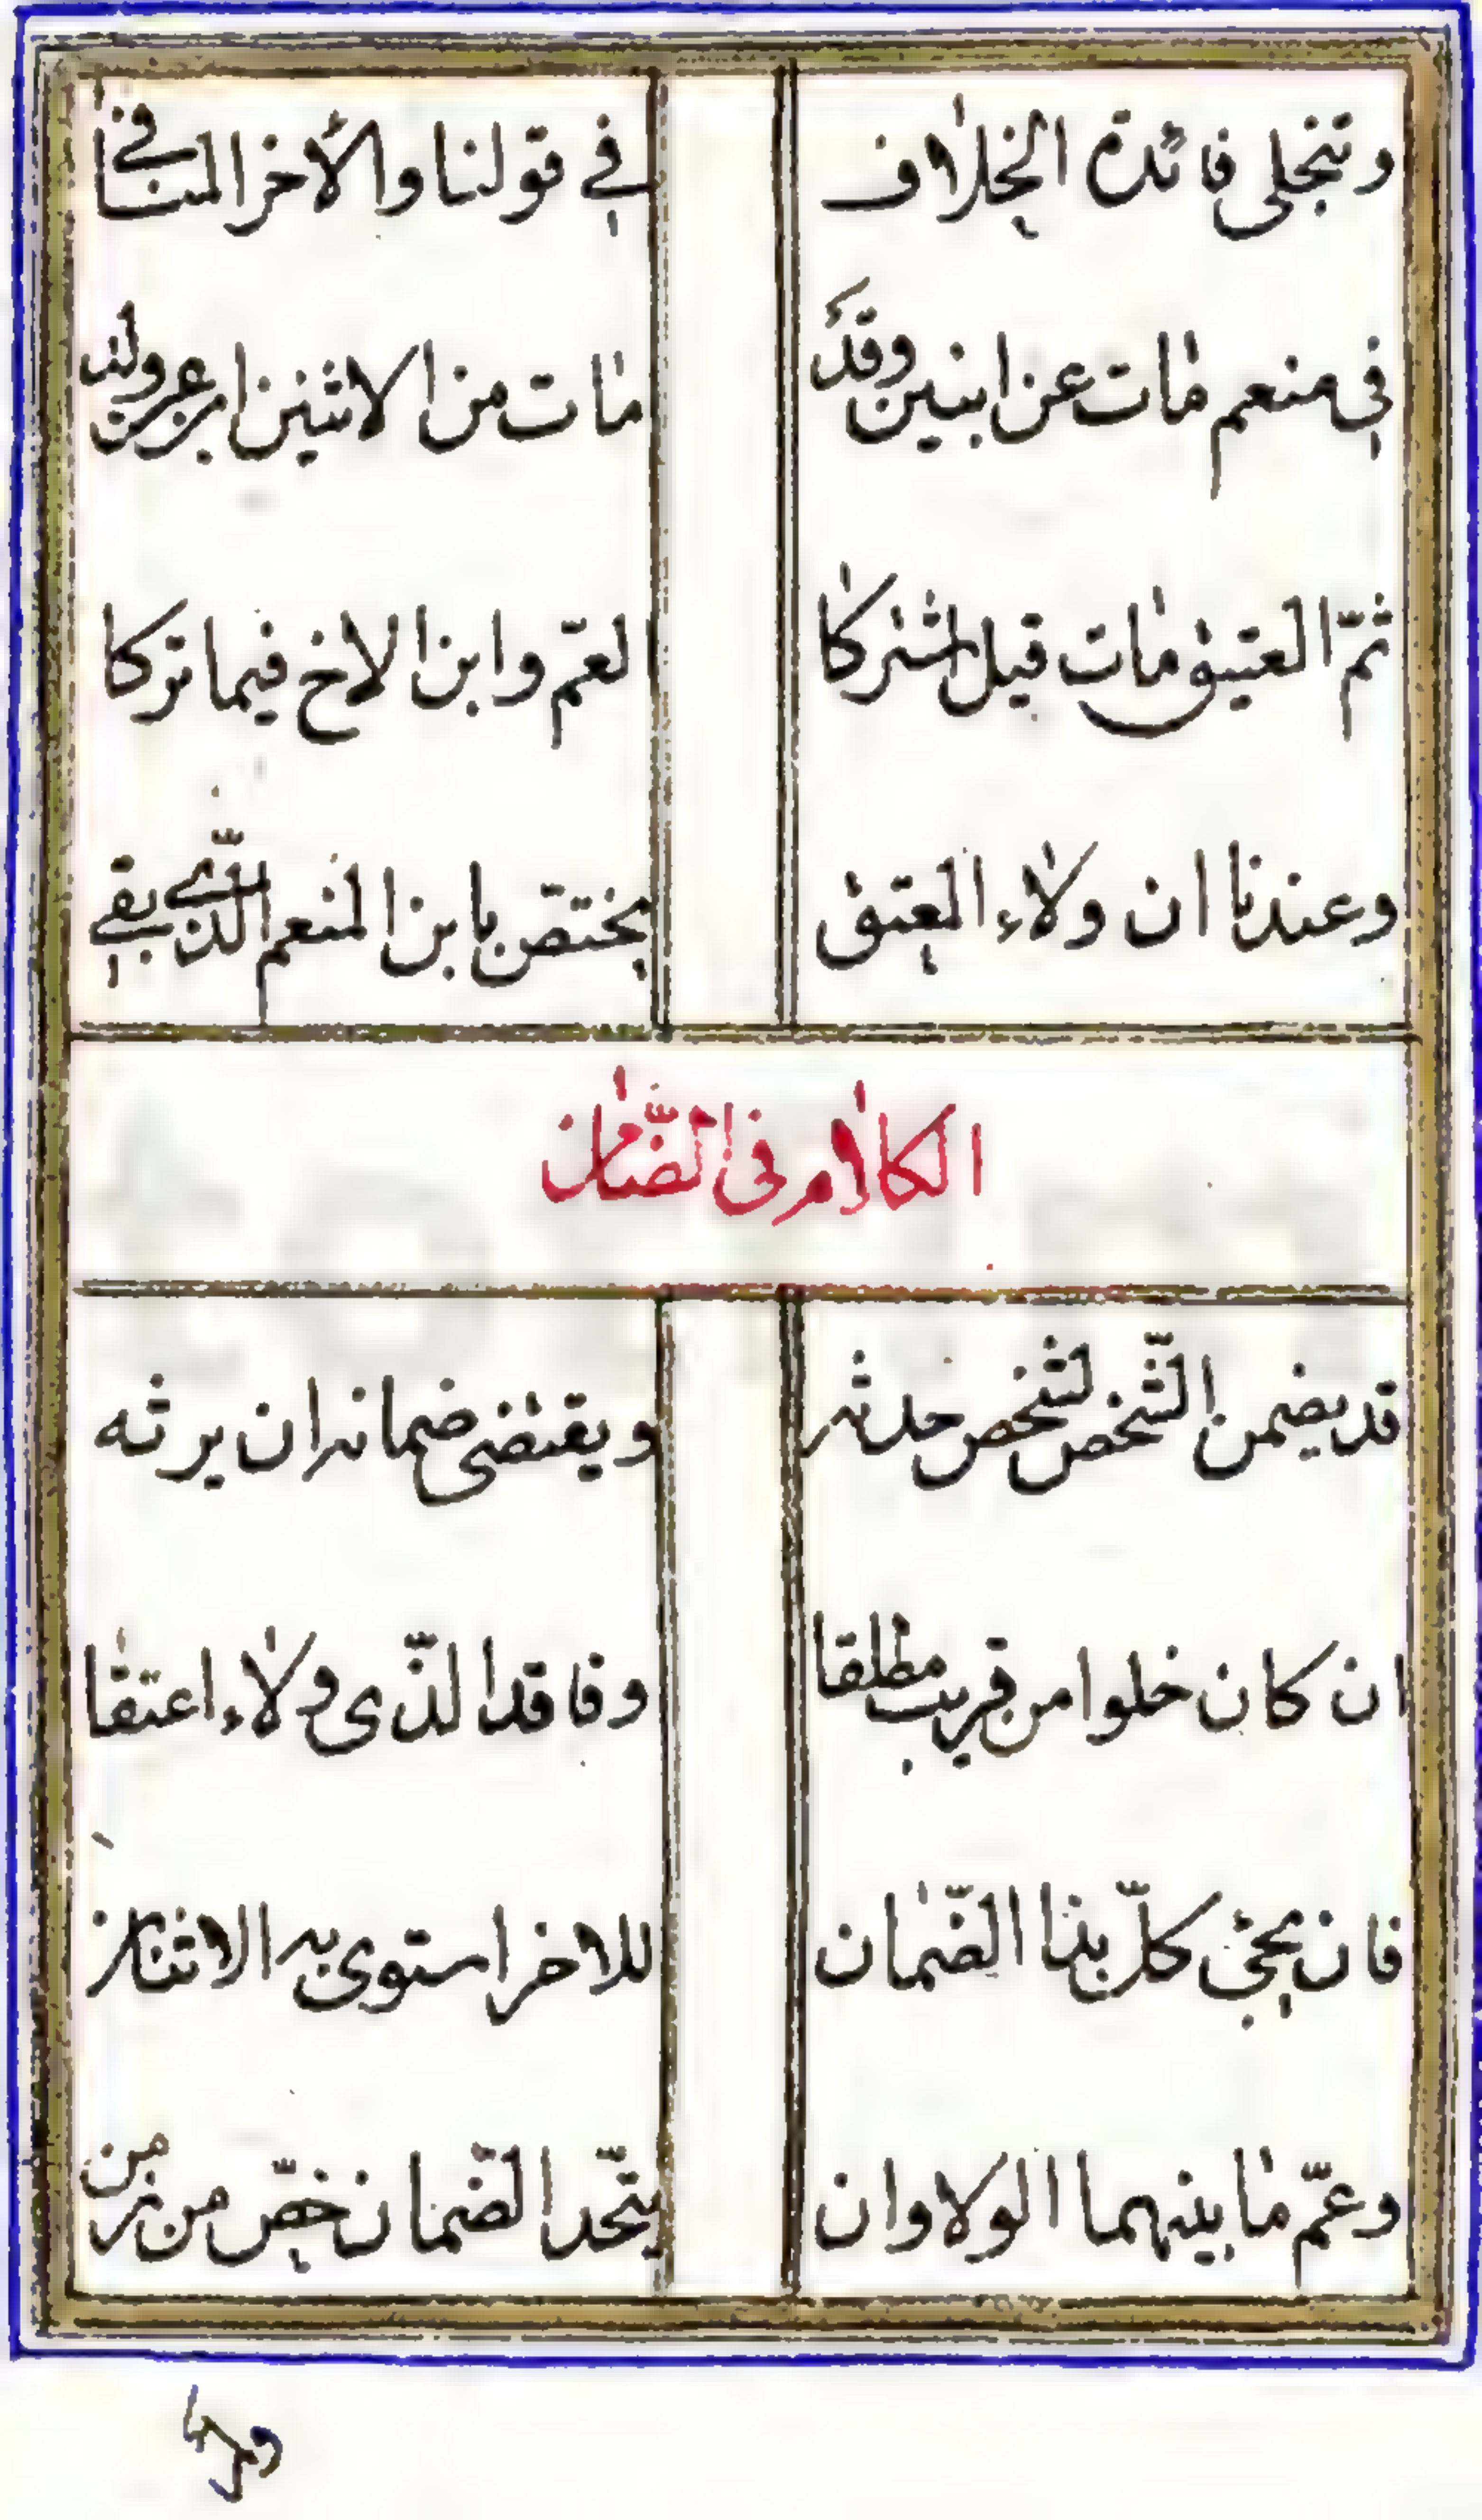 وتنجلى فائدة الخلاف في قولنا والأخر المنافي
في منعم مات عن ابنين وقد مات من الاثنين امرء عن ولد
ثمّ العتيق مات قيل اشتركا العمّ وابن الاخ فيما تركا
وعندنا ان ولاء المعتق يختصّ بابن المنعم الّذي بقي
الكلام فى الضّمان
قد يضمن الشّخص لشخص حدثه ويقتضى ضمانه ان يرثه
ان كان خلوا من قريب مطلقا وفاقد الّذى ولاء اعتقا
فان يجئ كلّ بذا الضّمان للاخر استوى به الاثنان
وعمّ ما بينهما الولا وان يتّحد الضّمان خصّ من ضمن